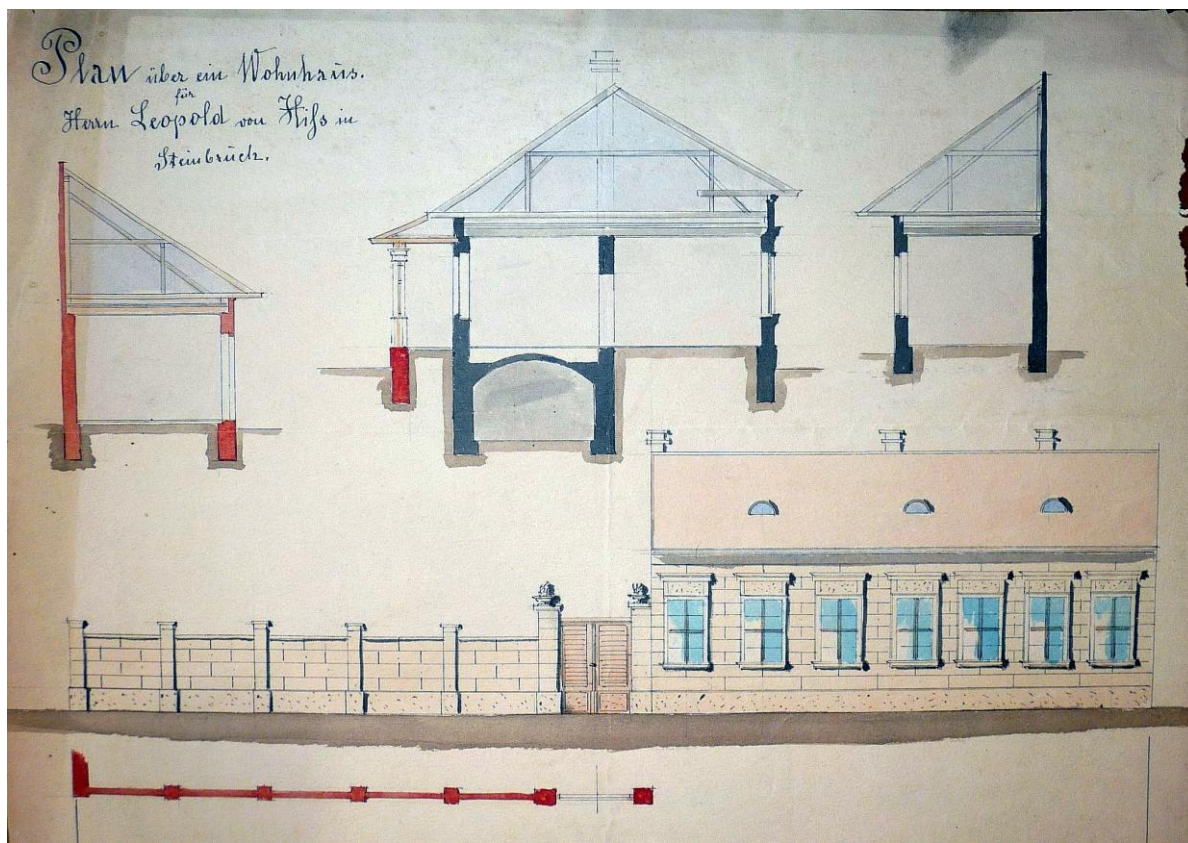 Plan über ein Wohnhaus.
für
Herrn Leopold von Hiſs in
Steinbruch.